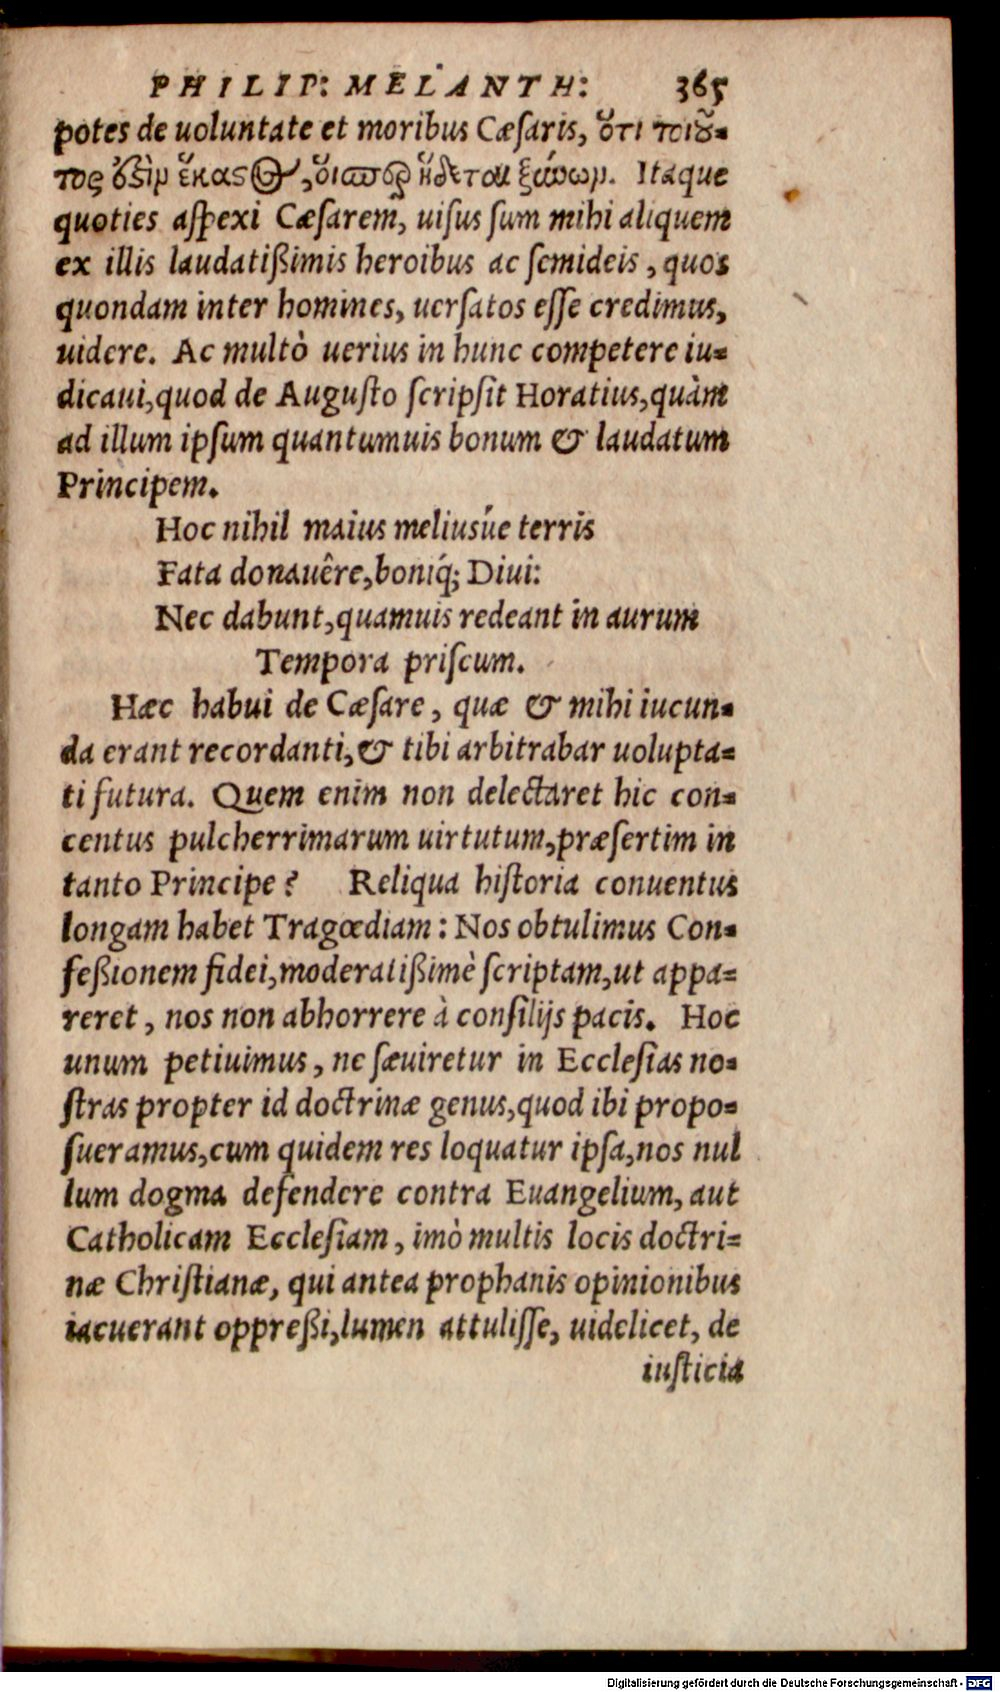 PHILIP: MELANTH: 365
potes de uoluntate et moribus Cæſaris, ὅτι τοιοῦ-
τος ὅστὶμ ἕκαστος, οἷσπερ ἥδεται ξυνωμ. Itaque
quoties aſpexi Cæſarem, uiſus ſum mihi aliquem
ex illis laudatißimis heroibus ac ſemideis, quos
quondam inter homines, uerſatos eſſe credimus,
uidere. Ac multò uerius in hunc competere iu-
dicaui, quod de Auguſto ſcripſit Horatius, quàm
ad illum ipſum quantumuis bonum & laudatum
Principem.
Hoc nihil maius meliusúe terris
Fata donauêre, boniq́; Diui:
Nec dabunt, quamuis redeant in aurum
Tempora priſcum.
Hæc habui de Cæſare, quæ & mihi iucun-
da erant recordanti, & tibi arbitrabar uolupta-
ti futura. Quem enim non delectaret hic con-
centus pulcherrimarum uirtutum, præſertim in
tanto Principe? Reliqua hiſtoria conuentus
longam habet Tragœdiam: Nos obtulimus Con-
feßionem fidei, moderatißimè ſcriptam, ut appa-
reret, nos non abhorrere à conſilijs pacis. Hoc
unum petiuimus, ne ſæuiretur in Eccleſias no-
ſtras propter id doctrinæ genus, quod ibi propo-
ſueramus, cum quidem res loquatur ipſa, nos nul
lum dogma defendere contra Euangelium, aut
Catholicam Eccleſiam, imò multis locis doctri-
næ Chriſtianæ, qui antea prophanis opinionibus
iacuerant oppreßi, lumen attuliſſe, uidelicet, de
iuſticia
Digitalisierung gefördert durch die Deutsche Forschungsgemeinschaft - DFG